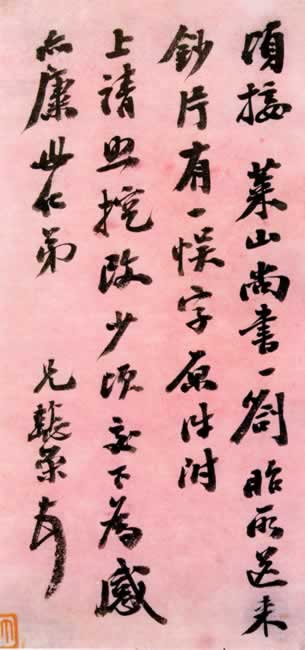 頃接 莱山尚書一劄昨所送来
鈔片有一悮字原件附
上請照挖改少頃交下為感
世仁弟 兄懿榮